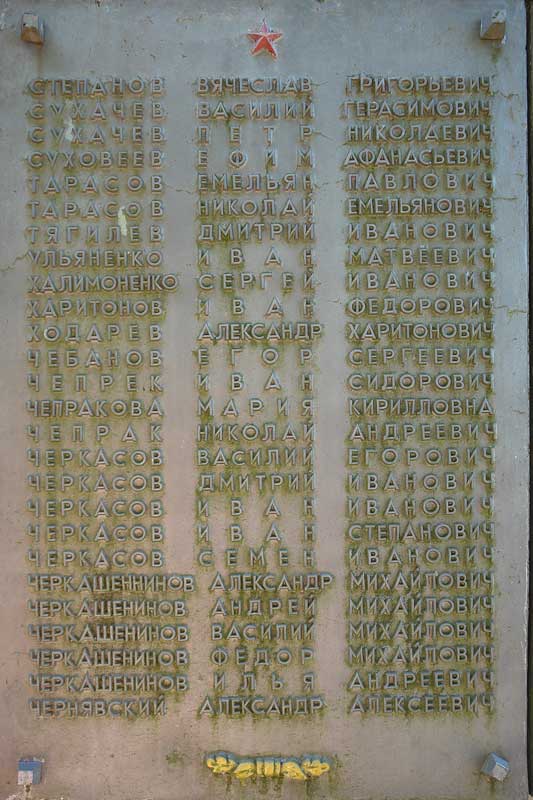 СТЕПАНОВ ВЯЧЕСЛАВ ГРИГОРЬЕВИЧ
СУХАЧЕВ ВАСИЛИЙ ГЕРАСИМОВИЧ
СУХАЧЕВ ПЕТР НИКОЛАЕВИЧ
СУХОВЕЕВ ЕФИМ АФАНАСЬЕВИЧ
ТАРАСОВ ЕМЕЛЬЯН ПАВЛОВИЧ
ТАРАСОВ НИКОЛАЙ ЕМЕЛЬЯНОВИЧ
ТЯГИЛЕВ ДМИТРИЙ ИВАНОВИЧ
УЛЬЯНЕНКО ИВАН МАТВЕЕВИЧ
ХАЛИМОНЕНКО СЕРГЕЙ ИВАНОВИЧ
ХАРИТОНОВ ИВАН ФЕДОРОВИЧ
ХОДАРЕВ АЛЕКСАНДР ХАРИТОНОВИЧ
ЧЕБАНОВ ЕГОР СЕРГЕЕВИЧ
ЧЕПРЕК ИВАН СИДОРОВИЧ
ЧЕПРАКОВА МАРИЯ КИРИЛЛОВНА
ЧЕПРАК НИКОЛАЙ АНДРЕЕВИЧ
ЧЕРКАСОВ ВАСИЛИЙ ЕГОРОВИЧ
ЧЕРКАСОВ ДМИТРИЙ ИВАНОВИЧ
ЧЕРКАСОВ ИВАН ИВАНОВИЧ
ЧЕРКАСОВ ИВАН СТЕПАНОВИЧ
ЧЕРКАСОВ СЕМЕН ИВАНОВИЧ
ЧЕРКАШЕННИНОВ АЛЕКСАНДР МИХАЙЛОВИЧ
ЧЕРКАШЕНИНОВ АНДРЕЙ МИХАЙЛОВИЧ
ЧЕРКАШЕНИНОВ ВАСИЛИЙ МИХАЙЛОВИЧ
ЧЕРКАШЕНИНОВ ФЕДОР МИХАЙЛОВИЧ
ЧЕРКАШЕНИНОВ ИЛЬЯ АНДРЕЕВИЧ
ЧЕРНЯВСКИЙ АЛЕКСАНДР АЛЕКСЕЕВИЧ